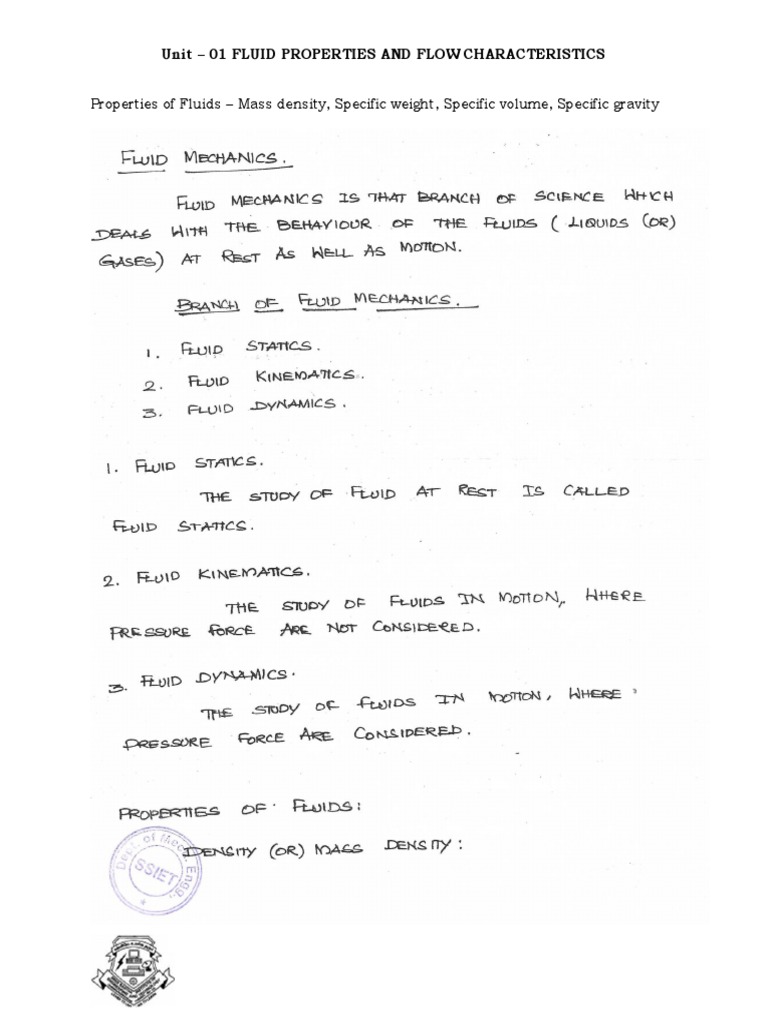 Unit – 01 FLUID PROPERTIES AND FLOW CHARACTERISTICS
Properties of Fluids – Mass density, Specific weight, Specific volume, Specific gravity
FLUID MECHANICS.
FLUID MECHANICS IS THAT BRANCH OF SCIENCE WHICH
DEALS WITH THE BEHAVIOUR OF THE FLUIDS ( LIQUIDS (OR)
GASES) AT REST AS WELL AS MOTION.
BRANCH OF FLUID MECHANICS.
1. FLUID STATICS.
2. FLUID KINEMATICS.
3. FLUID DYNAMICS.
1. FLUID STATICS.
THE STUDY OF FLUID AT REST IS CALLED
FLUID STATICS.
2. FLUID KINEMATICS.
THE STUDY OF FLUIDS IN MOTION, WHERE
PRESSURE FORCE ARE NOT CONSIDERED.
3. FLUID DYNAMICS.
THE STUDY OF FLUIDS IN MOTION, WHERE
PRESSURE FORCE ARE CONSIDERED.
PROPERTIES OF FLUIDS:
DENSITY (OR) MASS DENSITY:
Dept. of Mech. Engg.
SSIET